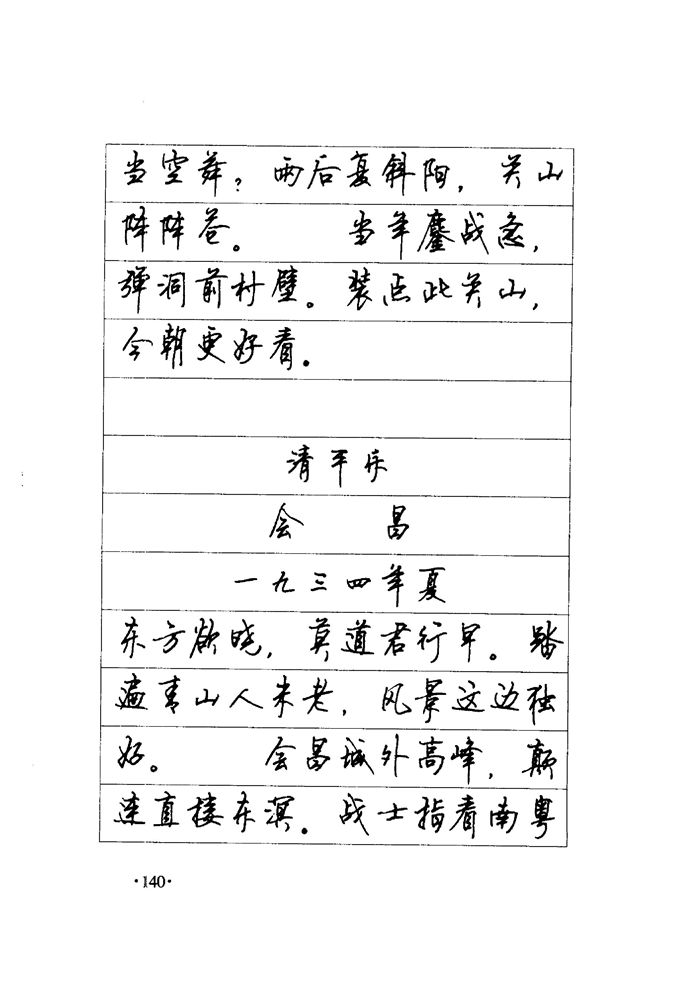 当空舞？雨后复斜阳，关山
阵阵苍。 当年鏖战急，
弹洞前村壁。装点此关山，
今朝更好看。
清平乐
会昌
一九三四年夏
东方欲晓，莫道君行早。踏
遍青山人未老，风景这边独
好。 会昌城外高峰，颠
连直接东溟。战士指看南粤
·140·